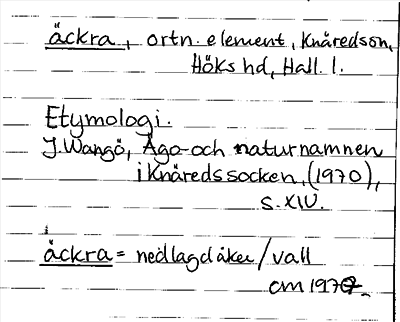 äckra, ortn. element, Knäredson,
Höks hd, Hall. l.
Etymologi.
J. Wangö, Ägo- och naturnamnen
i Knäreds socken, (1970),
s. XIV.
äckra = nedlagd åker/vall
cm 1970